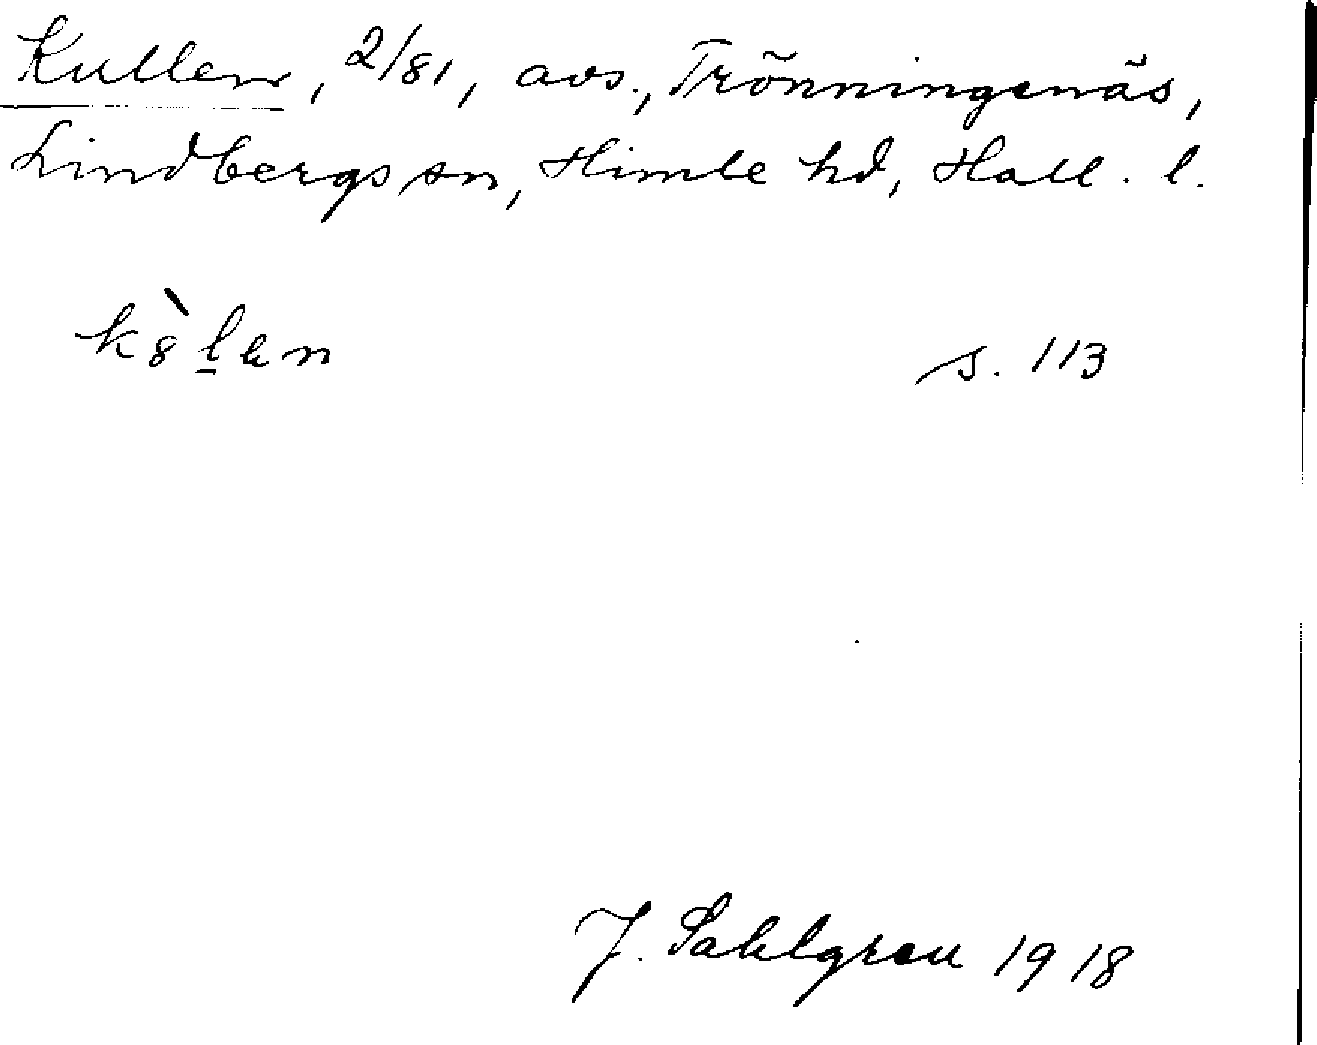 Kullen, 2/81, avs., Trönningenäs,
Lindbergs sn, Himle hd, Hall. l.
k8̀l̲en
s. 113
J. Sahlgren 1918